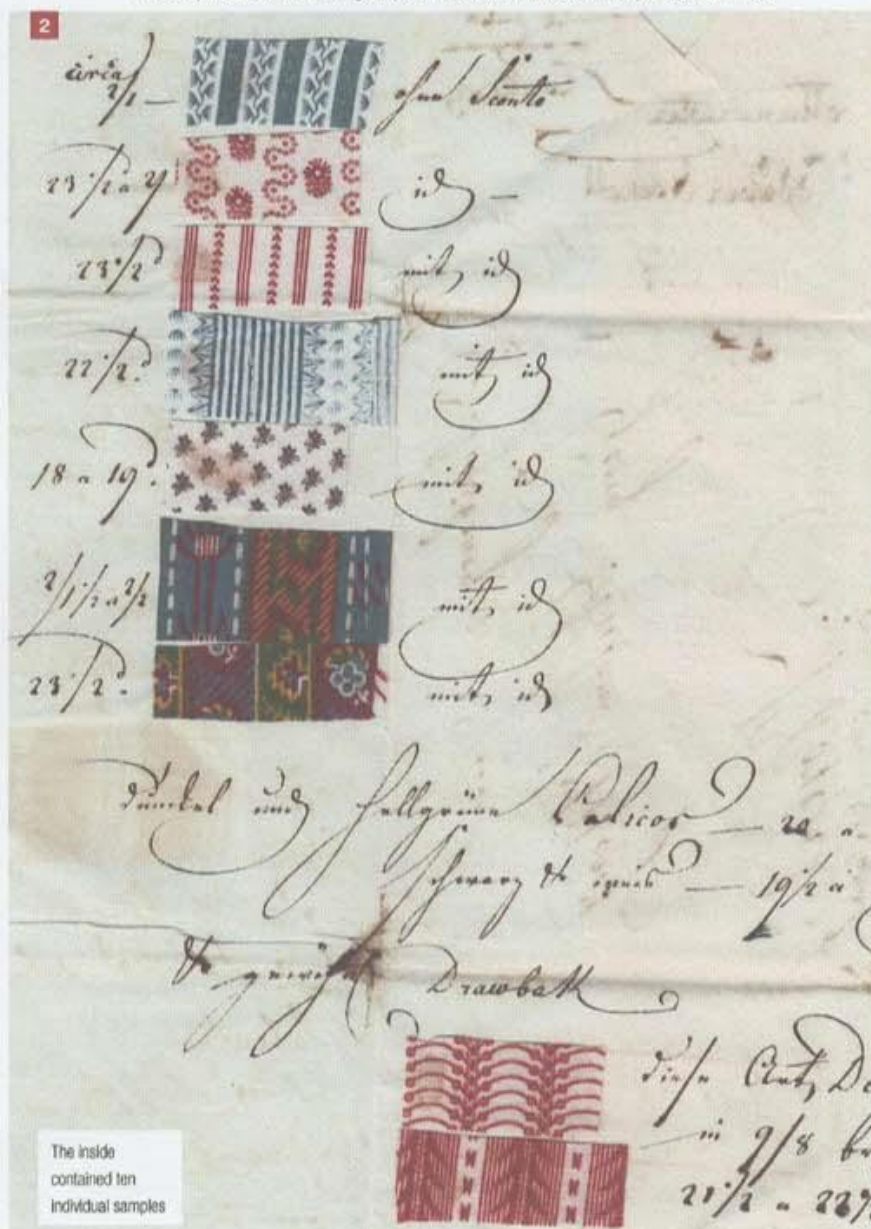 2
circa
2/1 — ohne Sconto
23 1/2 a id —
23 1/2 mit id
22 1/2 mit id
18 a 19 mit id
2/1 1/2 a 2/2 mit id
23 1/2 mit id
dunkel und hellgrüne Calicos — 20 a
schwarz & weis — 19 1/2 a
Drawbak
diese Art
in 9/8
21 1/2 a 22
The inside
contained ten
individual samples